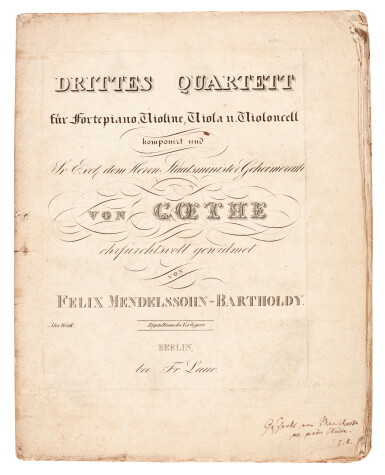 DRITTES QUARTETT
für Fortepiano, Violine, Viola u. Violoncell
komponirt und
Sr. Excl. dem Herrn Staatsminister Geheimerath
VON GŒTHE
ehrfurchtsvoll gewidmet
VON
FELIX MENDELSSOHN-BARTHOLDY.
3tes Werk
Eigenthum des Verlegers
BERLIN,
bei Fr. Laue.